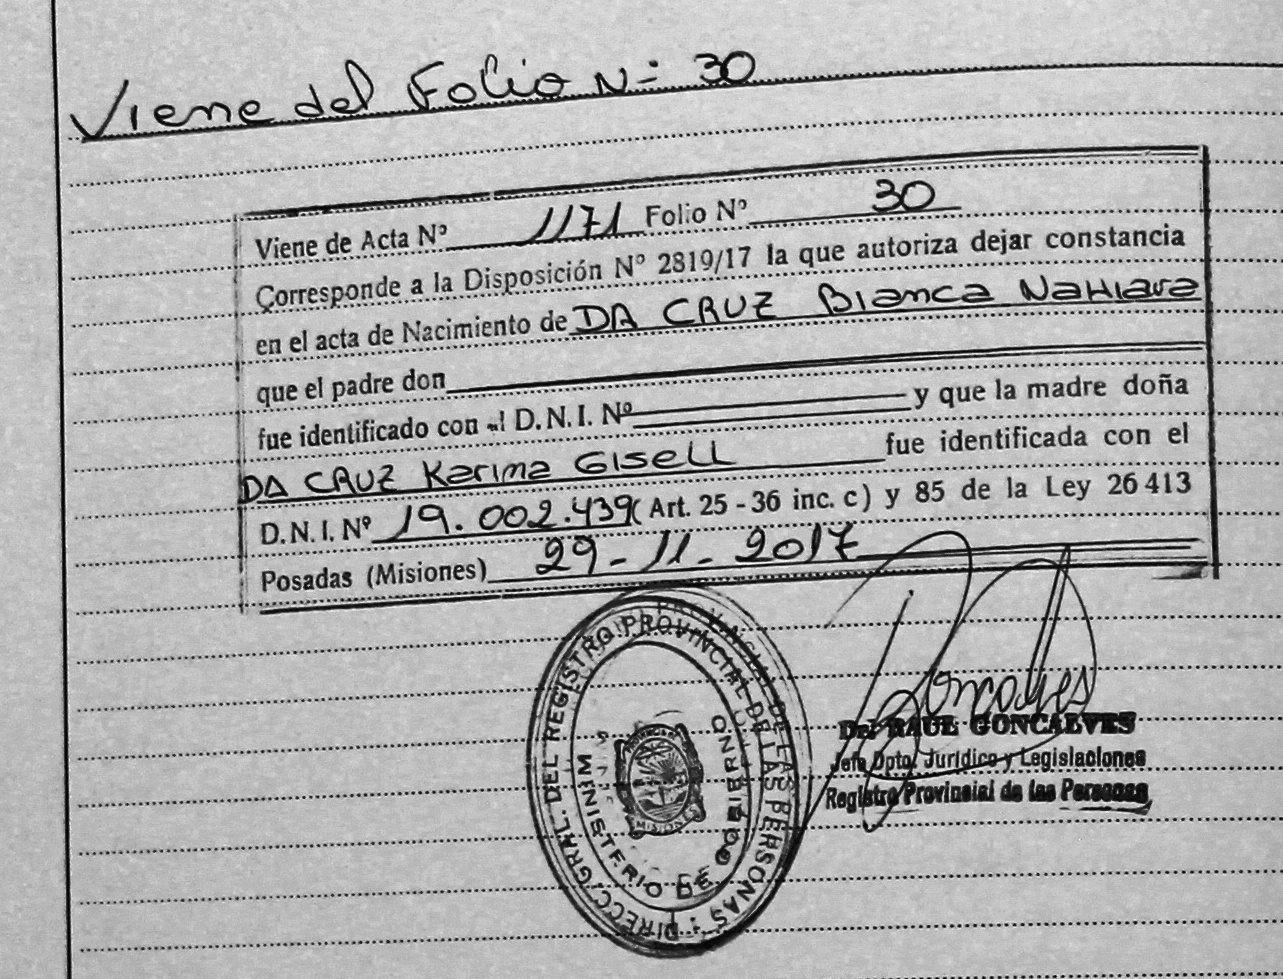 Viene del Folio N- 30
Viene de Acta Nº 1171 Folio Nº 30
Corresponde a la Disposición Nº 2819/17 la que autoriza dejar constancia
en el acta de Nacimiento de DA CRUZ Bianca Nahiara
que el padre don
fue identificado con el D.N.I. Nº y que la madre doña
DA CRUZ Karina Gisell fue identificada con el
D.N.I. Nº 19.002.439 (Art. 25 - 36 inc. c) y 85 de la Ley 26 413
Posadas (Misiones) 29-11-2017
DIRECC. GRAL. DEL REGISTRO PROVINCIAL DE LAS PERSONAS
MINISTERIO DE GOBIERNO
MISIONES
Goncalves
RAUL GONCALVES
Jefe Dpto. Jurídico y Legislaciones
Registro Provincial de las Personas